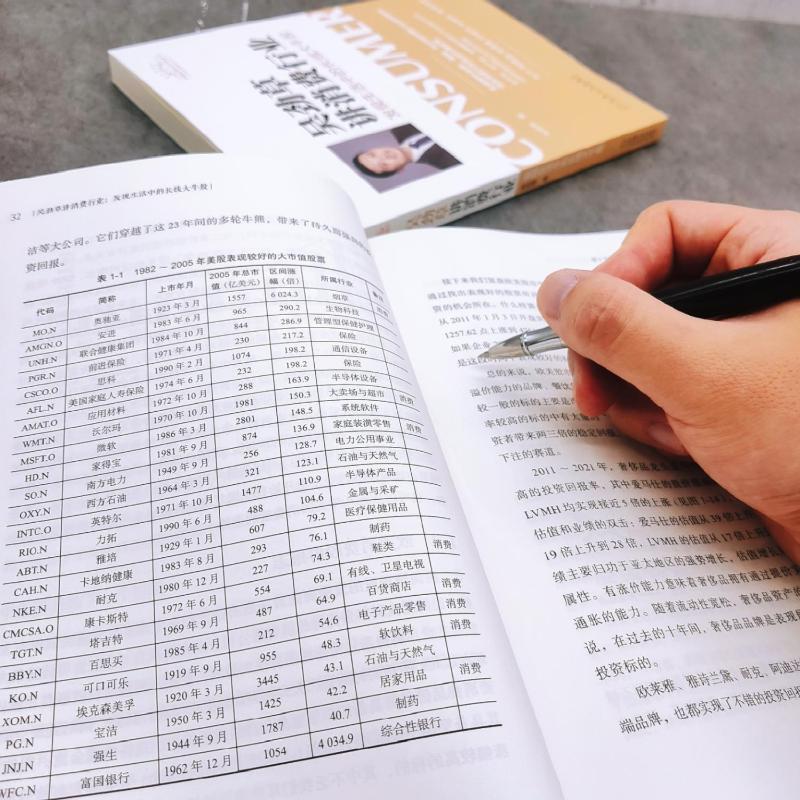 吴劲草
讲消费行业
CONSUMER
32 | 吴劲草讲消费行业：发现生活中的长线大牛股 |
洁等大公司。它们穿越了这 23 年间的多轮牛熊，带来了持久而
资回报。
表 1-1 1982 ~ 2005 年美股表现较好的大市值股票
代码 简称 上市年月 2005 年总市值（亿美元） 区间涨幅（倍） 所属行业 备注
MO.N 奥驰亚 1923 年 3 月 1557 6 024.3 烟草
AMGN.O 安进 1983 年 6 月 965 290.2 生物科技
UNH.N 联合健康集团 1984 年 10 月 844 286.9 管理型保健护理
PGR.N 前进保险 1971 年 4 月 230 217.2 保险
CSCO.O 思科 1990 年 2 月 1074 198.2 通信设备
AFL.N 美国家庭人寿保险 1974 年 6 月 232 198.2 保险
AMAT.O 应用材料 1972 年 10 月 288 163.9 半导体设备
WMT.N 沃尔玛 1970 年 10 月 1981 150.3 大卖场与超市 消费
MSFT.O 微软 1986 年 3 月 2801 148.5 系统软件
HD.N 家得宝 1981 年 9 月 874 136.9 家庭装潢零售 消费
SO.N 南方电力 1949 年 9 月 256 128.7 电力公用事业
OXY.N 西方石油 1964 年 3 月 321 123.1 石油与天然气
INTC.O 英特尔 1971 年 10 月 1477 110.9 半导体产品
RIO.N 力拓 1990 年 6 月 488 104.6 金属与采矿
ABT.N 雅培 1929 年 1 月 607 79.2 医疗保健用品
CAH.N 卡地纳健康 1983 年 8 月 293 76.1 制药
NKE.N 耐克 1980 年 12 月 227 74.3 鞋类 消费
CMCSA.O 康卡斯特 1972 年 6 月 554 69.1 有线、卫星电视
TGT.N 塔吉特 1969 年 9 月 487 64.9 百货商店 消费
BBY.N 百思买 1985 年 4 月 212 54.6 电子产品零售 消费
KO.N 可口可乐 1919 年 9 月 955 48.3 软饮料 消费
XOM.N 埃克森美孚 1920 年 3 月 3445 43.1 石油与天然气
PG.N 宝洁 1950 年 3 月 1425 42.2 居家用品 消费
JNJ.N 强生 1944 年 9 月 1787 40.7 制药
WFC.N 富国银行 1962 年 12 月 1054 4 034.9 综合性银行
接下来我们
通过找出表现好的股票
的机会所在。
从 2011 年 1 月 3 日
1257.62 点上涨到
如果企业
是这
总的来说，欧
溢价能力的品牌、餐饮
较一般的标的主要是
率较高的标的中有大量
资者带来两三倍的稳定
下注的赛道。
2011 ~ 2021 年，奢侈品龙头
高的投资回报率，其中爱马仕的股价
LVMH 均实现接近 5 倍的上涨（见图 1-14
估值和业绩的双击，爱马仕的估值从 39 倍上
19 倍上升到 28 倍，LVMH 的估值从 17 倍上
绩主要归功于亚太地区的强势增长，估值增长
属性。有涨价能力意味着奢侈品拥有通过提价
通胀的能力。随着流动性宽松、奢侈品资产的
说，在过去的十年间，奢侈品品牌是表现
投资标的。
欧莱雅、雅诗兰黛、耐克、阿迪达
端品牌，也都实现了不错的投资回报